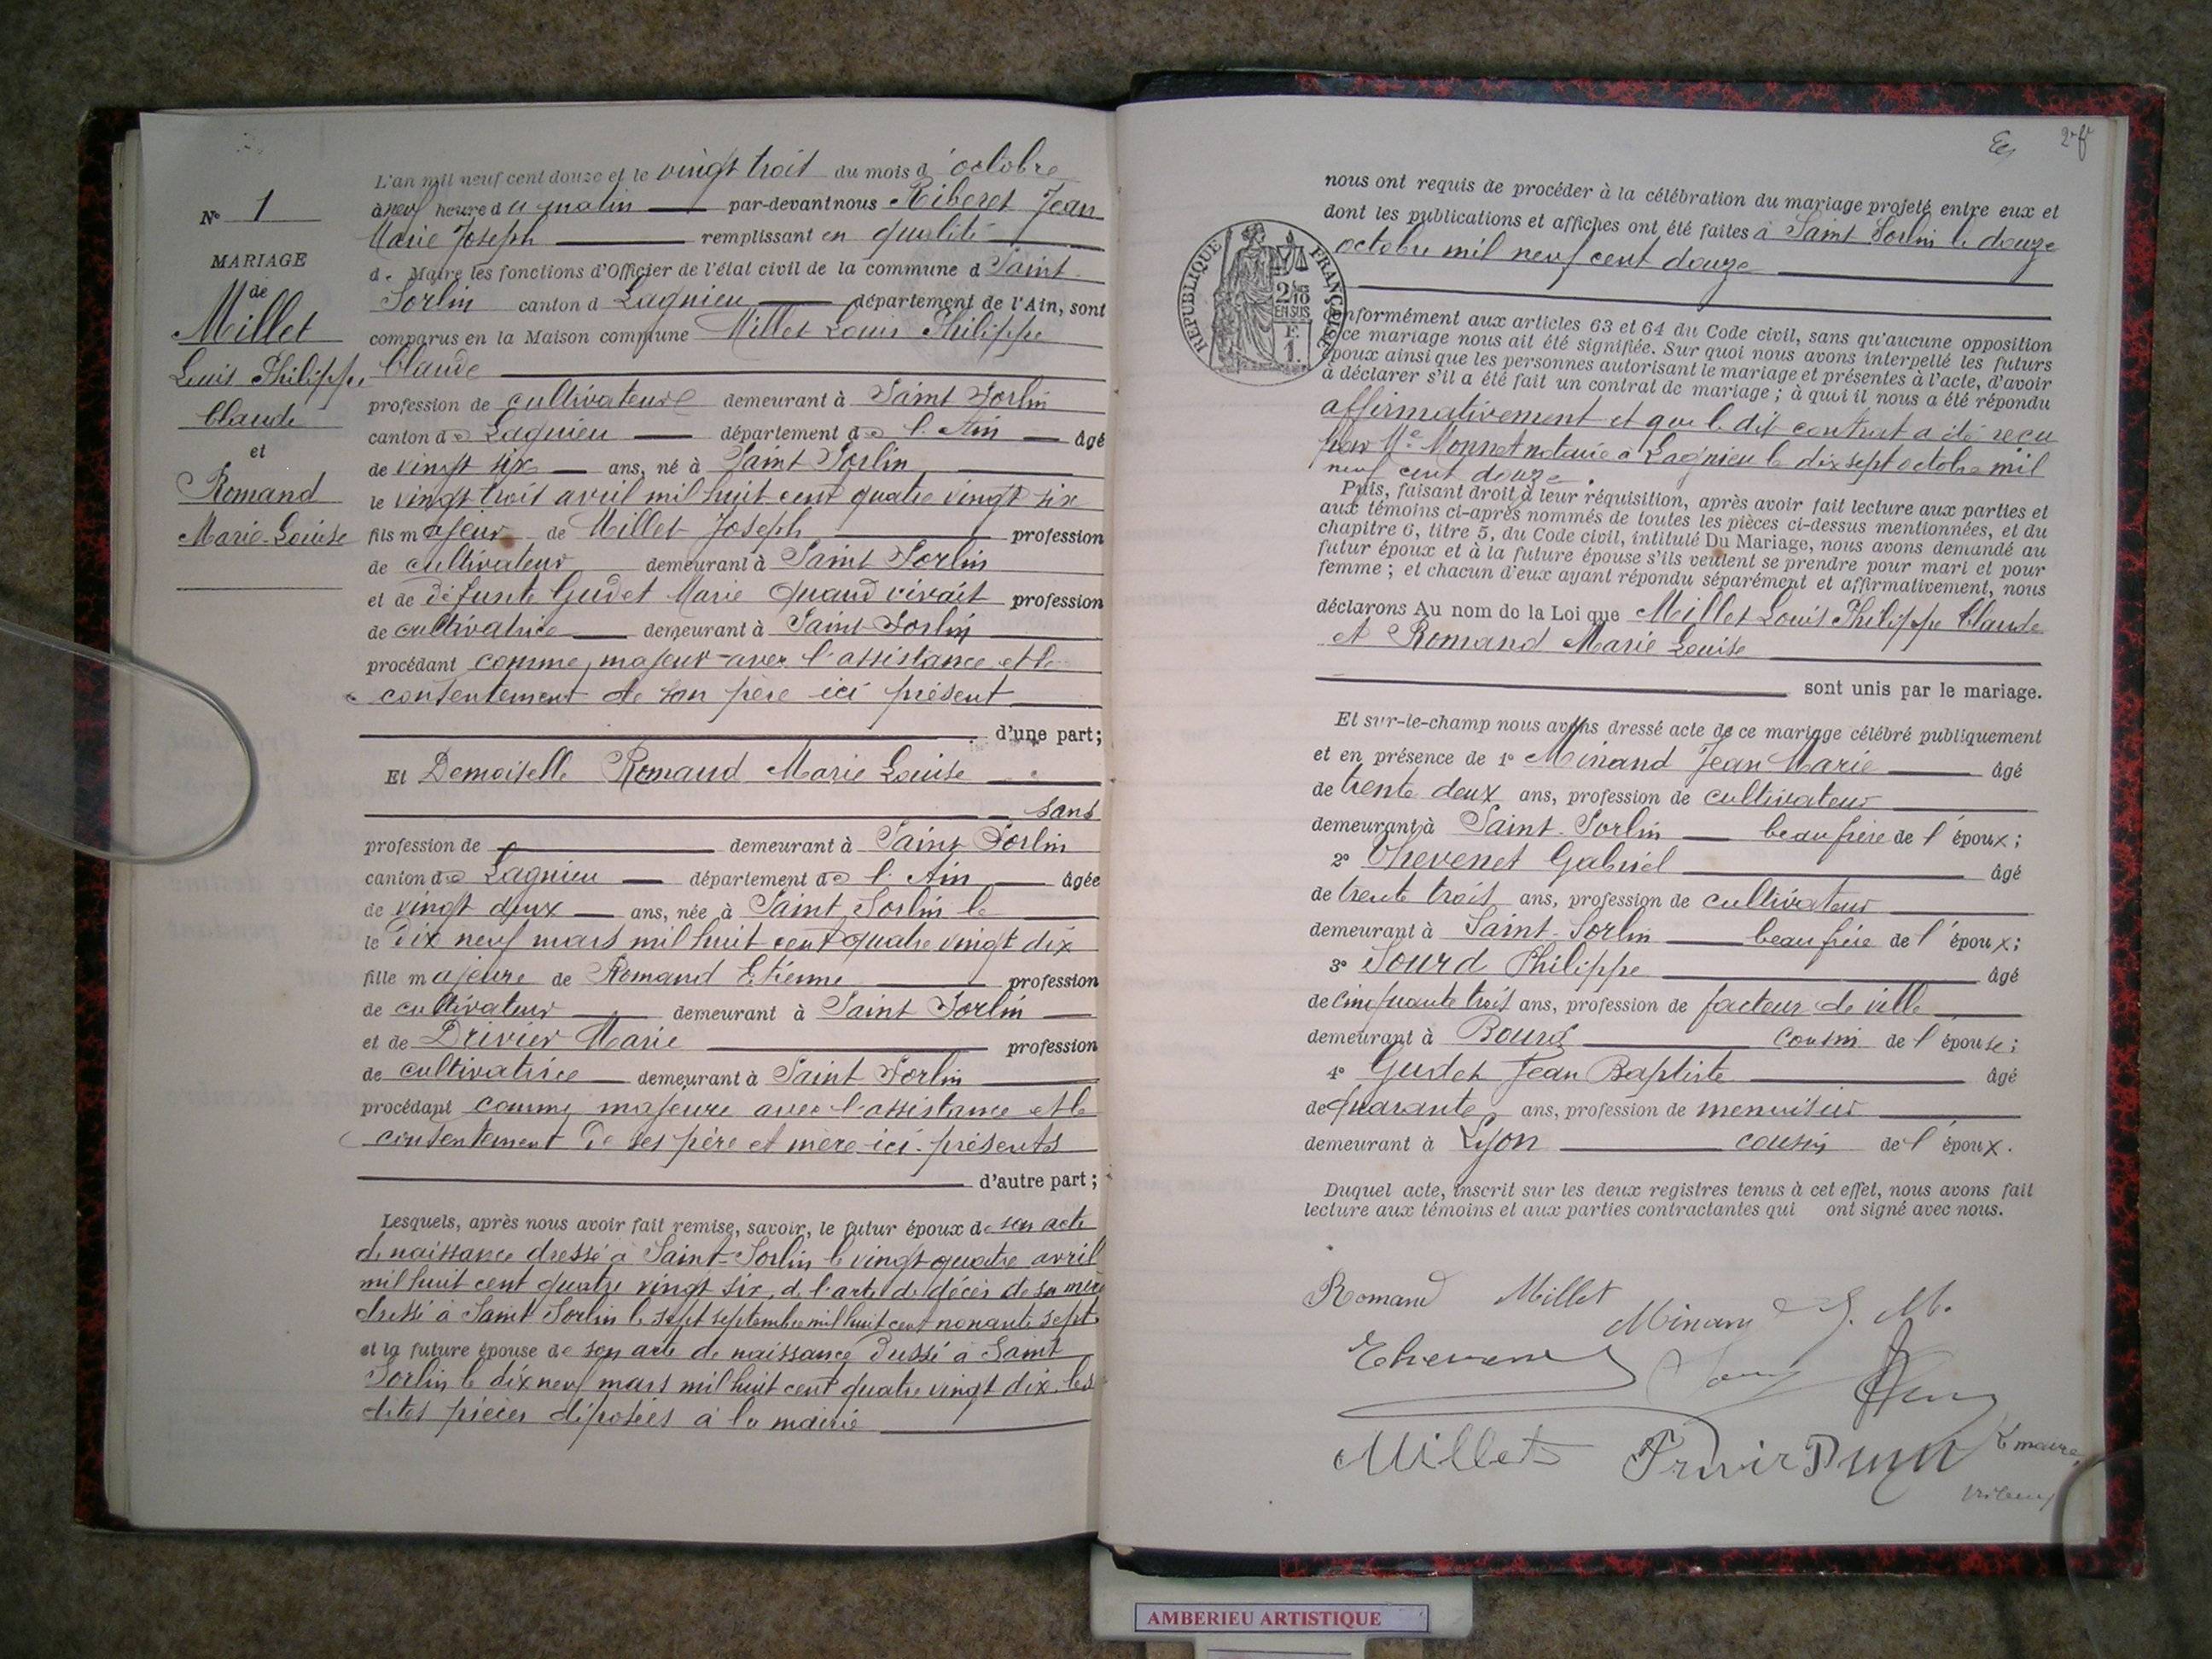 N° 1
MARIAGE
de
Millet
Louis Philippe
Claude
et
Romand
Marie-Louise
L'an mil neuf cent douze et le vingt trois du mois d'octobre
à neuf heure du matin par-devant nous Riberet Jean
Marie Joseph remplissant en qualité
de Maire les fonctions d'Officier de l'état civil de la commune d Saint
Sorlin canton d Lagnieu département de l'Ain, sont
comparus en la Maison commune Millet Louis Philippe
Claude
profession de cultivateur demeurant à Saint Sorlin
canton de Lagnieu département de l'Ain âgé
de vingt six ans, né à Saint Sorlin
le vingt trois avril mil huit cent quatre vingt six
fils majeur de Millet Joseph profession
de cultivateur demeurant à Saint Sorlin
et de défunte Gudet Marie quand vivait profession
de cultivatrice demeurant à Saint-Sorlin
procédant comme majeur avec l'assistance et le
consentement de son père ici présent
d'une part;
Et Demoiselle Romand Marie Louise
sans
profession de demeurant à Saint Sorlin
canton de Lagnieu département de l'Ain âgée
de vingt deux ans, née à Saint Sorlin le
le dix neuf mars mil huit cent quatre vingt dix
fille majeure de Romand Etienne profession
de cultivateur demeurant à Saint Sorlin
et de Drivier Marie profession
de cultivatrice demeurant à Saint Sorlin
procédant comme majeure avec l'assistance et le
consentement de ses père et mère ici présents
d'autre part;
Lesquels, après nous avoir fait remise, savoir, le futur époux de son acte
de naissance dressé à Saint-Sorlin le vingt quatre avril
mil huit cent quatre vingt six, de l'acte de décès de sa mère
dressé à Saint Sorlin le sept septembre mil huit cent nonante sept
et la future épouse de son acte de naissance dressé à Saint
Sorlin le dix neuf mars mil huit cent quatre vingt dix les
dites pièces déposées à la mairie
2 f
RÉPUBLIQUE FRANÇAISE
2/10
EN SUS
F
1.
nous ont requis de procéder à la célébration du mariage projeté entre eux et
dont les publications et affiches ont été faites à Saint Sorlin le douze
octobre mil neuf cent douze
conformément aux articles 63 et 64 du Code civil, sans qu'aucune opposition
à ce mariage nous ait été signifiée. Sur quoi nous avons interpellé les futurs
époux ainsi que les personnes autorisant le mariage et présentes à l'acte, d'avoir
à déclarer s'il a été fait un contrat de mariage; à quoi il nous a été répondu
affirmativement et que le dit contrat a été reçu
par Me Monnet notaire à Lagnieu le dix sept octobre mil
neuf cent douze.
Puis, faisant droit à leur réquisition, après avoir fait lecture aux parties et
aux témoins ci-après nommés de toutes les pièces ci-dessus mentionnées, et du
chapitre 6, titre 5, du Code civil, intitulé Du Mariage, nous avons demandé au
futur époux et à la future épouse s'ils veulent se prendre pour mari et pour
femme; et chacun d'eux ayant répondu séparément et affirmativement, nous
déclarons Au nom de la Loi que Millet Louis Philippe Claude
et Romand Marie Louise
sont unis par le mariage.
Et sur-le-champ nous avons dressé acte de ce mariage célébré publiquement
et en présence de 1° Minand Jean Marie âgé
de trente deux ans, profession de cultivateur
demeurant à Saint-Sorlin beau frère de l'époux;
2° Thevenet Gabriel âgé
de trente trois ans, profession de cultivateur
demeurant à Saint-Sorlin beau frère de l'époux;
3° Sourd Philippe âgé
de cinquante trois ans, profession de facteur de ville
demeurant à Bourg cousin de l'épouse;
4° Gudet Jean Baptiste âgé
de quarante ans, profession de menuisier
demeurant à Lyon cousin de l'époux.
Duquel acte, inscrit sur les deux registres tenus à cet effet, nous avons fait
lecture aux témoins et aux parties contractantes qui ont signé avec nous.
Romand Millet
Minand J. M.
Millet
Le maire
AMBERIEU ARTISTIQUE